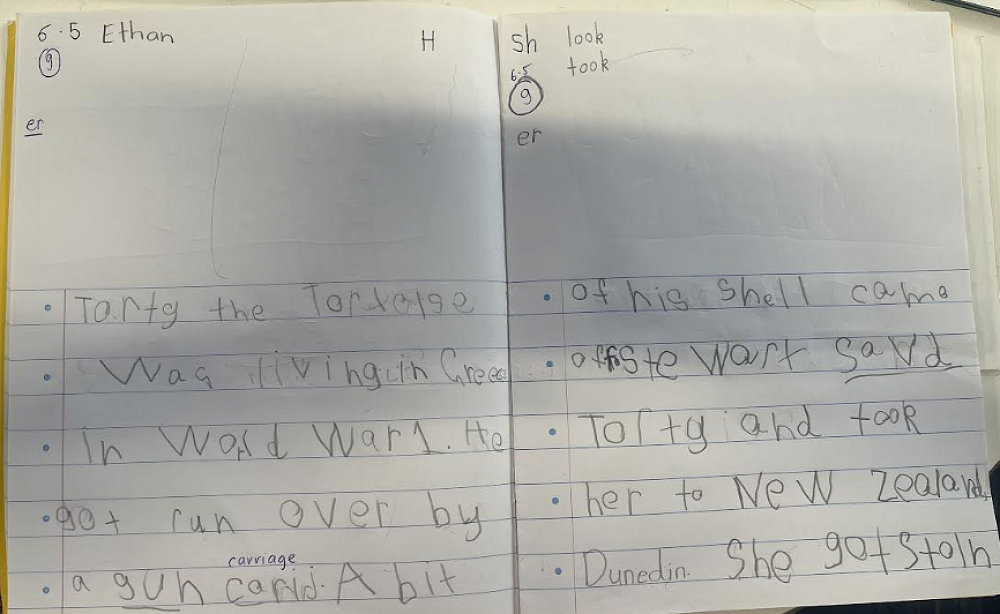 6.5 Ethan H
9
er
Torty the Tortoise
Was living in Greec
in World War 1. He
got run over by
carriage
a gun carid. A bit
sh look
took
6.5
9
er
of his shell came
off Ste Wart Savd
Torty and took
her to New Zealand
Dunedin. She got Stoln